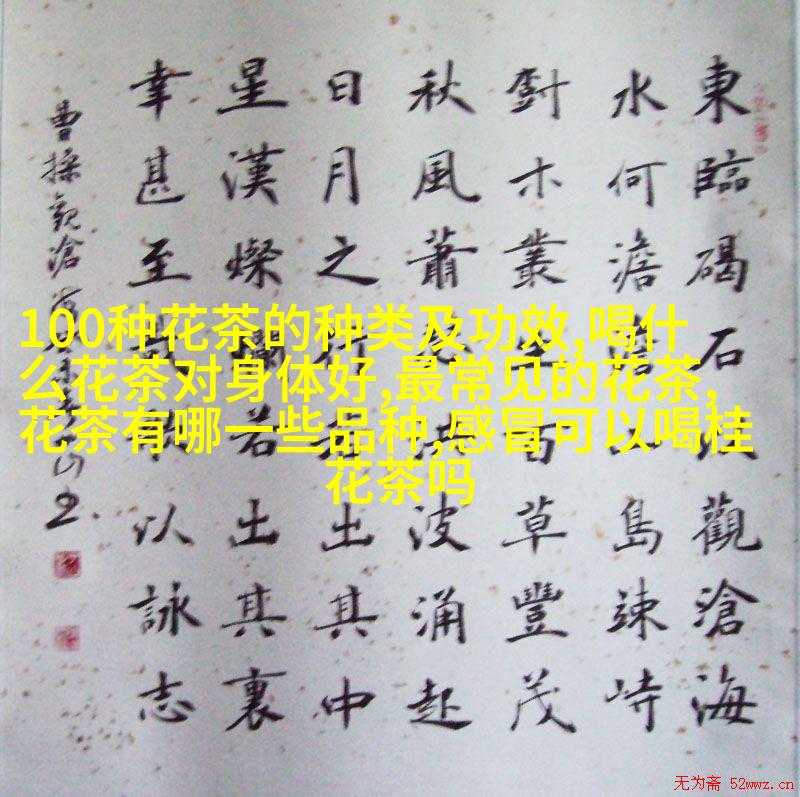 東臨碣石以觀滄海
水何澹澹山島竦峙
木叢生百草豐茂
秋風蕭瑟洪波涌起
日月之行若出其中
星漢燦爛若出其裏
幸甚至哉歌以詠志
曹操觀滄
100种花茶的种类及功效,喝什
么花茶对身体好,最常见的花茶,
花茶有哪一些品种,感冒可以喝桂
花茶吗
无为斋 52wwz.cn